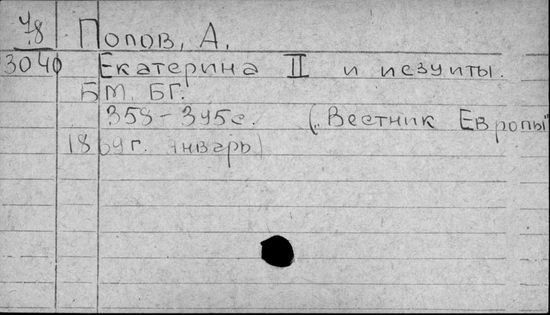 78
3040
Попов, А.
Екатерина II и иезуиты.
БМ. БГ.
353-395с. („Вестник Европы"
1869г. январь)